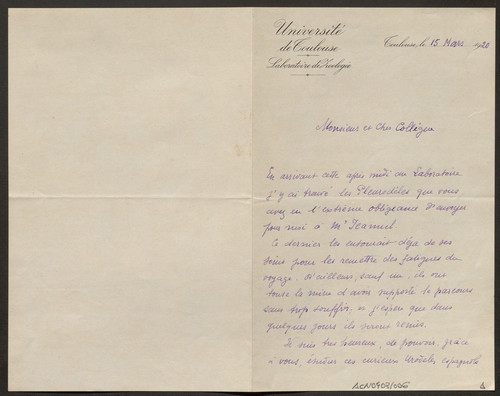 Université
de Toulouse
Laboratoire de Zoologie
Toulouse, le 15 Mars 1920
Monsieur et Cher Collègue
En arrivant cette après midi au Laboratoire
j'y ai trouvé les Pleurodèles que vous
avez eu l'extrême obligeance d'envoyer
pour moi à Mr Jeannel.
Ce dernier les entourait déjà de ses
soins pour les remettre des fatigues du
voyage. D'ailleurs, sauf un, ils ont
tous le mieux d'avoir supporté le parcours
sans trop souffrir, et j'espère que dans
quelques jours ils seront remis.
Je suis très heureux, de pouvoir, grâce
à vous, étudier ces curieux Urodèles espagnols
ACN0909/006